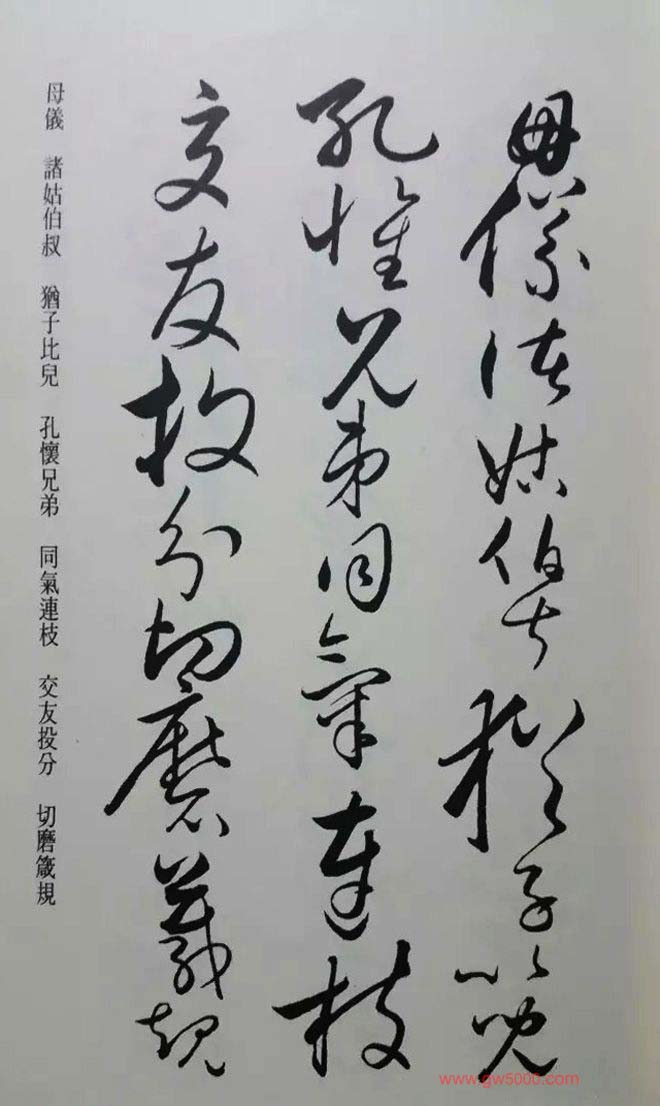 母儀諸姑伯叔猶子比兒
孔懷兄弟同氣連枝
交友投分切磨箴規
母儀 諸姑伯叔 猶子比兒 孔懷兄弟 同氣連枝 交友投分 切磨箴規
www.gw5000.com